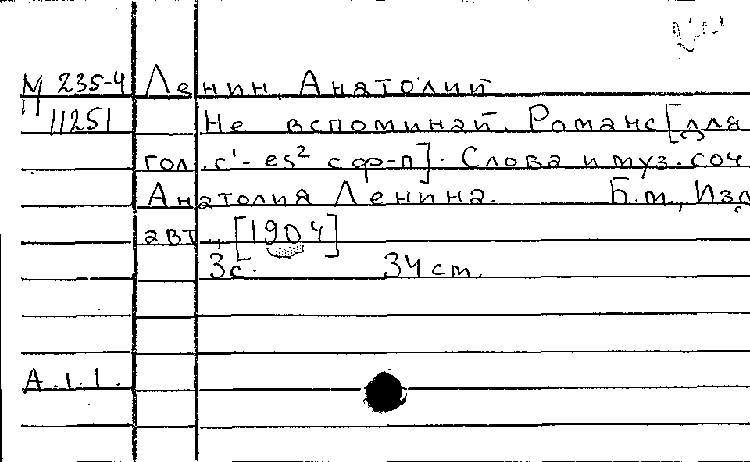 М 235-4 Ленин Анатолий
11251 Не вспоминай. Романс [для
гол. c¹- es² с ф-п]. Слова и муз. соч.
Анатолия Ленина. Б.м., Изд.
авт., [1904]
3с. 34 см.
А.1.1.